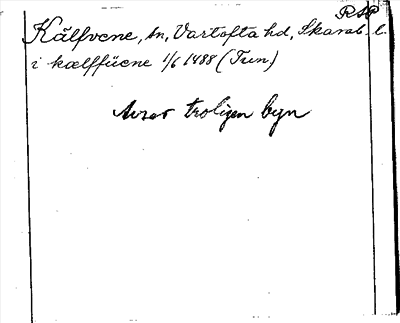 RAP
Kälfvene, sn, Vartofta hd, Skarab. l.
i kælffüene 1/6 1488 (Tun)
Avser troligen byn